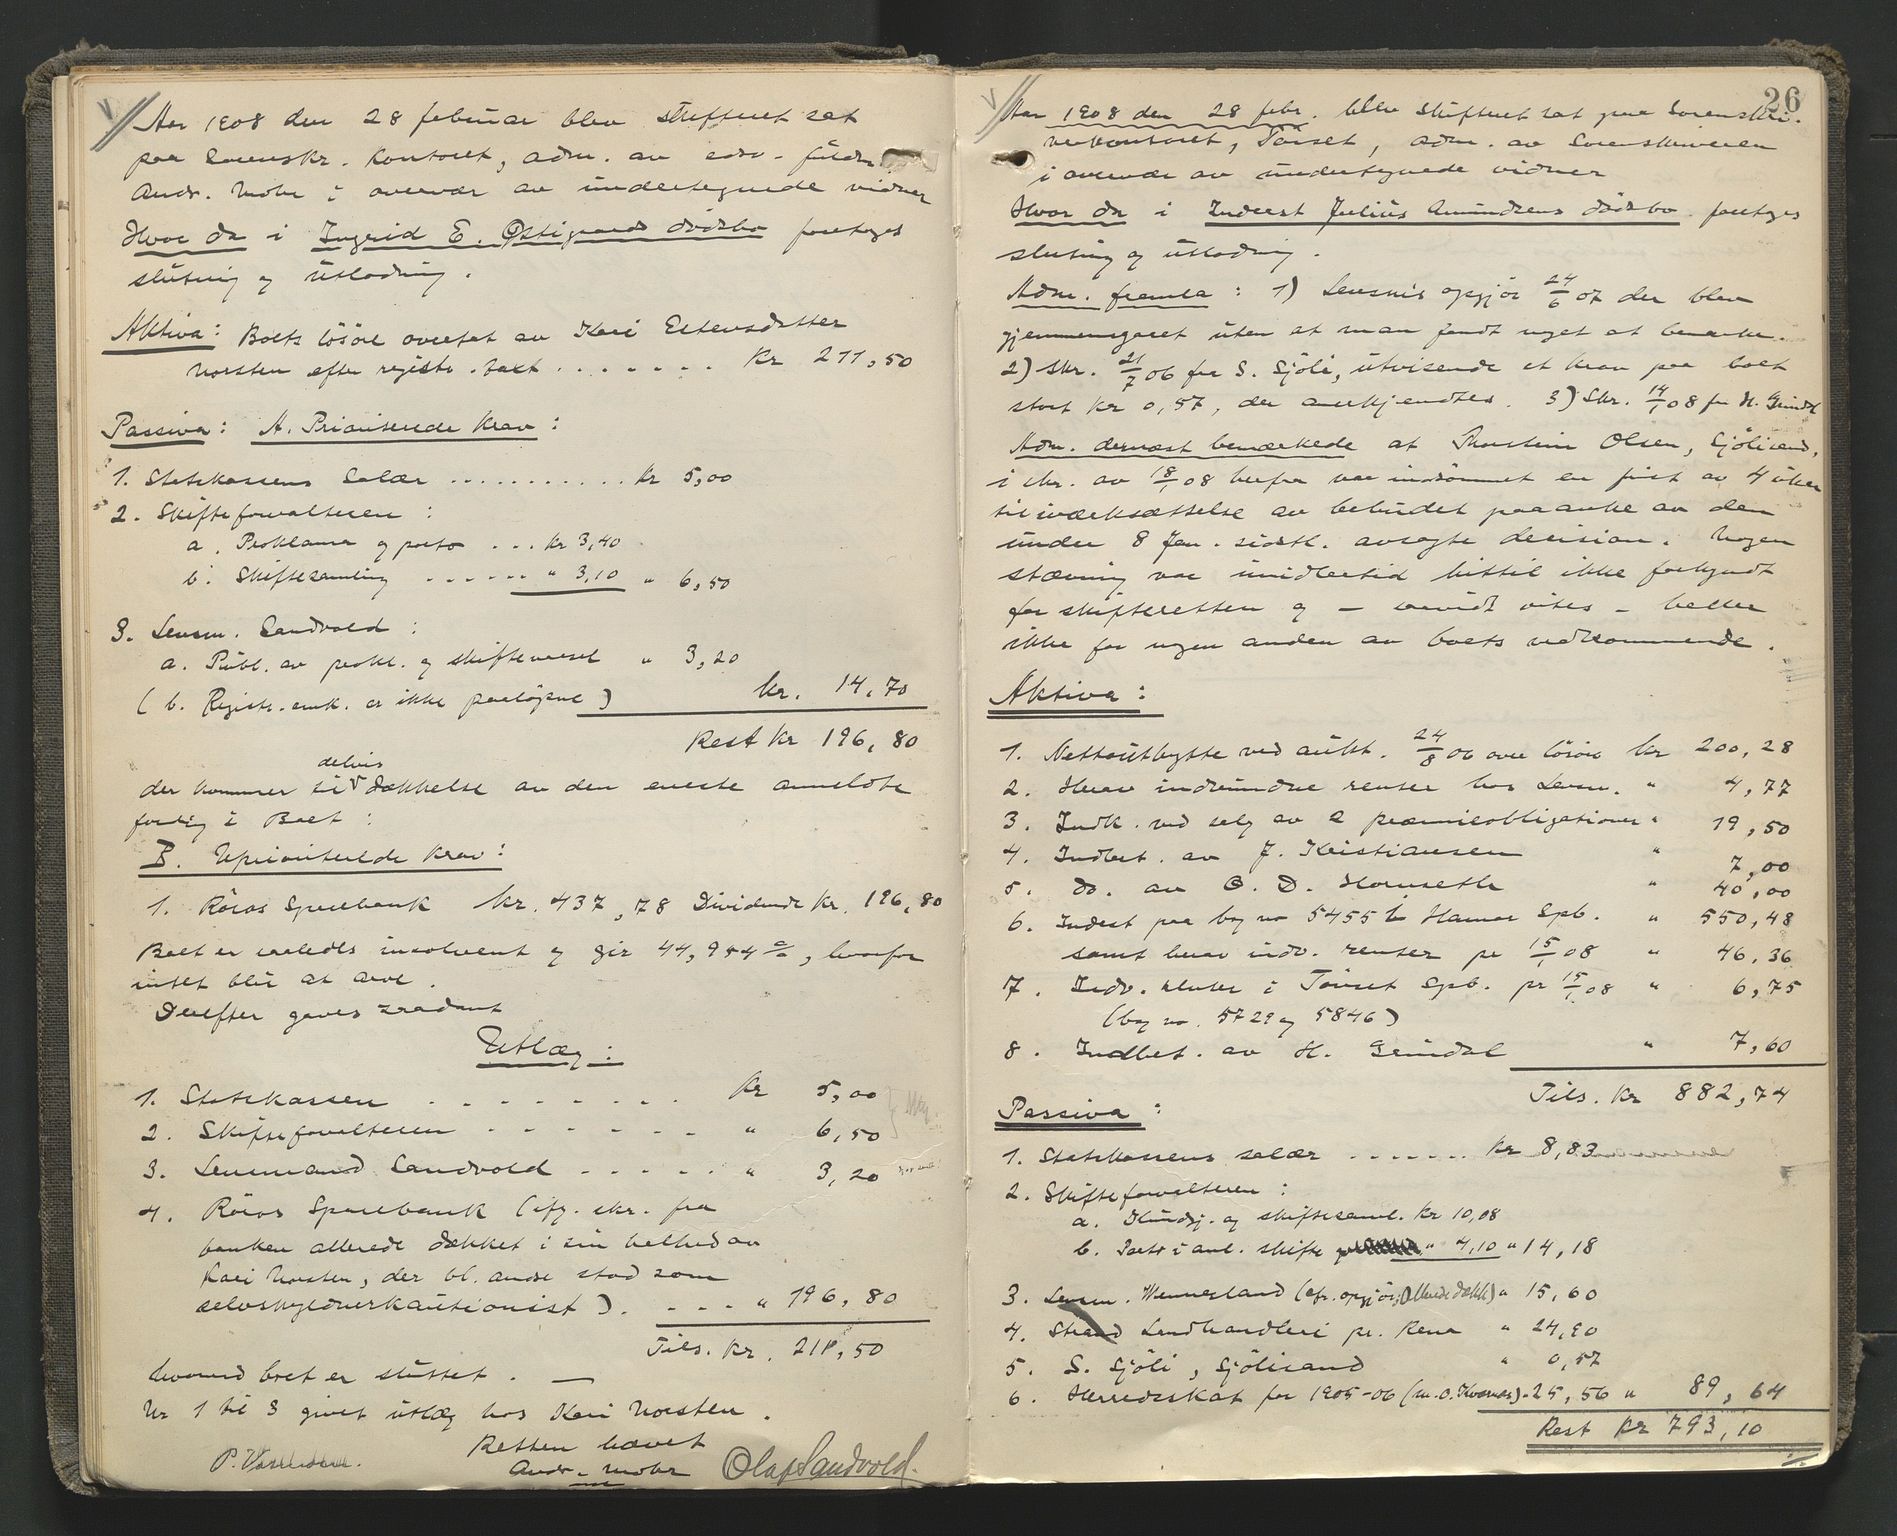 Aar 1908 den 28 februar blev skifteret sat
paa Sorenskr. kontoret, adm. av edv. fuldm.
Andr. Mohr i overvær av undertegnede vidner
Hvor da i Ingrid E. Østigaards dødsbo foretages
slutning og utlodning.
Aktiva: Boets løsöre overtat av Kari Estensdatter
Norsten efter registr. takst . . . . . . . Kr 211,50
Passiva: A. Prioriterede krav:
1. Statskassens Salær . . . . . . . . . . . kr 5,00
2. Skifteforvalteren:
a. Proklama og porto . . . kr 3,40
b. Skiftesamling . . . . . . " 3,10 " 6,50
3. Lensm. Sandvold:
a. Publ. av prokl. og skiftevarsel " 3,20
(b. Registr. omk. er ikke paaløpne) kr. 14,70
Rest kr 196,80
delvis
der kommer til dækkelse av den eneste anmeldte
fordring i Boet:
B. Uprioriterede krav:
1. Röros Sparebank kr. 437,78 Dividende kr. 196,80
Boet er saaledes insolvent og gir 44,954 %, hvorfor
intet blir at arve.
Derefter gaves saadant
Utlæg:
1. Statskassen . . . . . . . . kr 5,00
2. Skifteforvalteren . . . . . . . " 6,50
3. Lensmand Sandvold . . . . . " 3,20
4. Röros Sparebank (ifg. skr. fra
banken allerede dækket i sin helhed av
Kari Norsten, der bl. andre stod som
selvskyldnerkautionist). . . . . " 196,80
Tils. kr. 211,50
hvormed boet er sluttet. —
Nr 1 til 3 givet utlæg hos Kari Norsten.
Retten hævet
Andr. Mohr
Olaf Sandvold.
26
Aar 1908 den 28 febr. blev skifteret sat paa Sorenskri-
verkontoret, Tönset, adm. av Sorenskriveren
i overvær av undertegnede vidner
Hvor da i Inderst Julius Amundsens dödsbo foretages
slutning og utlodning.
Adm. fremla: 1) Lensm's opgjör 24/6 07 der blev
gjennemgaaet uten at man fandt noget at bemerke.
2) Skr. 21/7 06 fra S. Sjöli, utvisende et krav paa boet
stort kr 0,57, der anerkjendtes. 3) Skr. 14/1 08 fra H. Grindal
Adm. dernæst bemærkede at Thorstein Olsen, Sjölisand,
i skr. av 18/1 08 herfra var indrömmet en frist av 4 uker
til iværksættelse av bebudet paaanke av den
under 8 Jan. sidstl. avsagte decision. Nogen
stævning var imidlertid hittil ikke forkyndt
for skifteretten og — saavidt vites — heller
ikke for nogen anden av boets vedkommende.
Aktiva:
1. Nettoutbytte ved aukt. 24/8 06 over lösöre kr 200,28
2. Herav indvundne renter hos Lensm. " 4,77
3. Indk. ved salg av 2 præmieobligationer " 19,50
4. Indbet. av J. Kristiansen " 7,00
5. do. av O. D. Hornseth " 40,00
6. Indest. paa bog no 5455 b Hamar Spb. " 550,48
samt herav indv. renter pr 15/1 08 " 46,36
7. Indv. renter i Tönset Spb. pr 15/1 08 " 6,75
(bog no. 5729 og 5846)
8. Indbet. av H. Grindal " 7,60
Tils. kr 882,74
Passiva:
1. Statskassens salær . . . . . . kr 8,83
2. Skifteforvalteren:
a. Kundgj. og skiftesaml. kr 10,08
b. Porto i anl. skifte " 4,10 " 14,18
3. Lensm. Wennesland (efr. opgjör, allerede dækk) " 15,60
4. Strand Landhandleri pr. Rena " 24,90
5. S. Sjöli, Sjölisand " 0,57
6. Herredsskat for 1905-06 (m. O. Kvernes) " 25,56 " 89,64
Rest kr 793,10